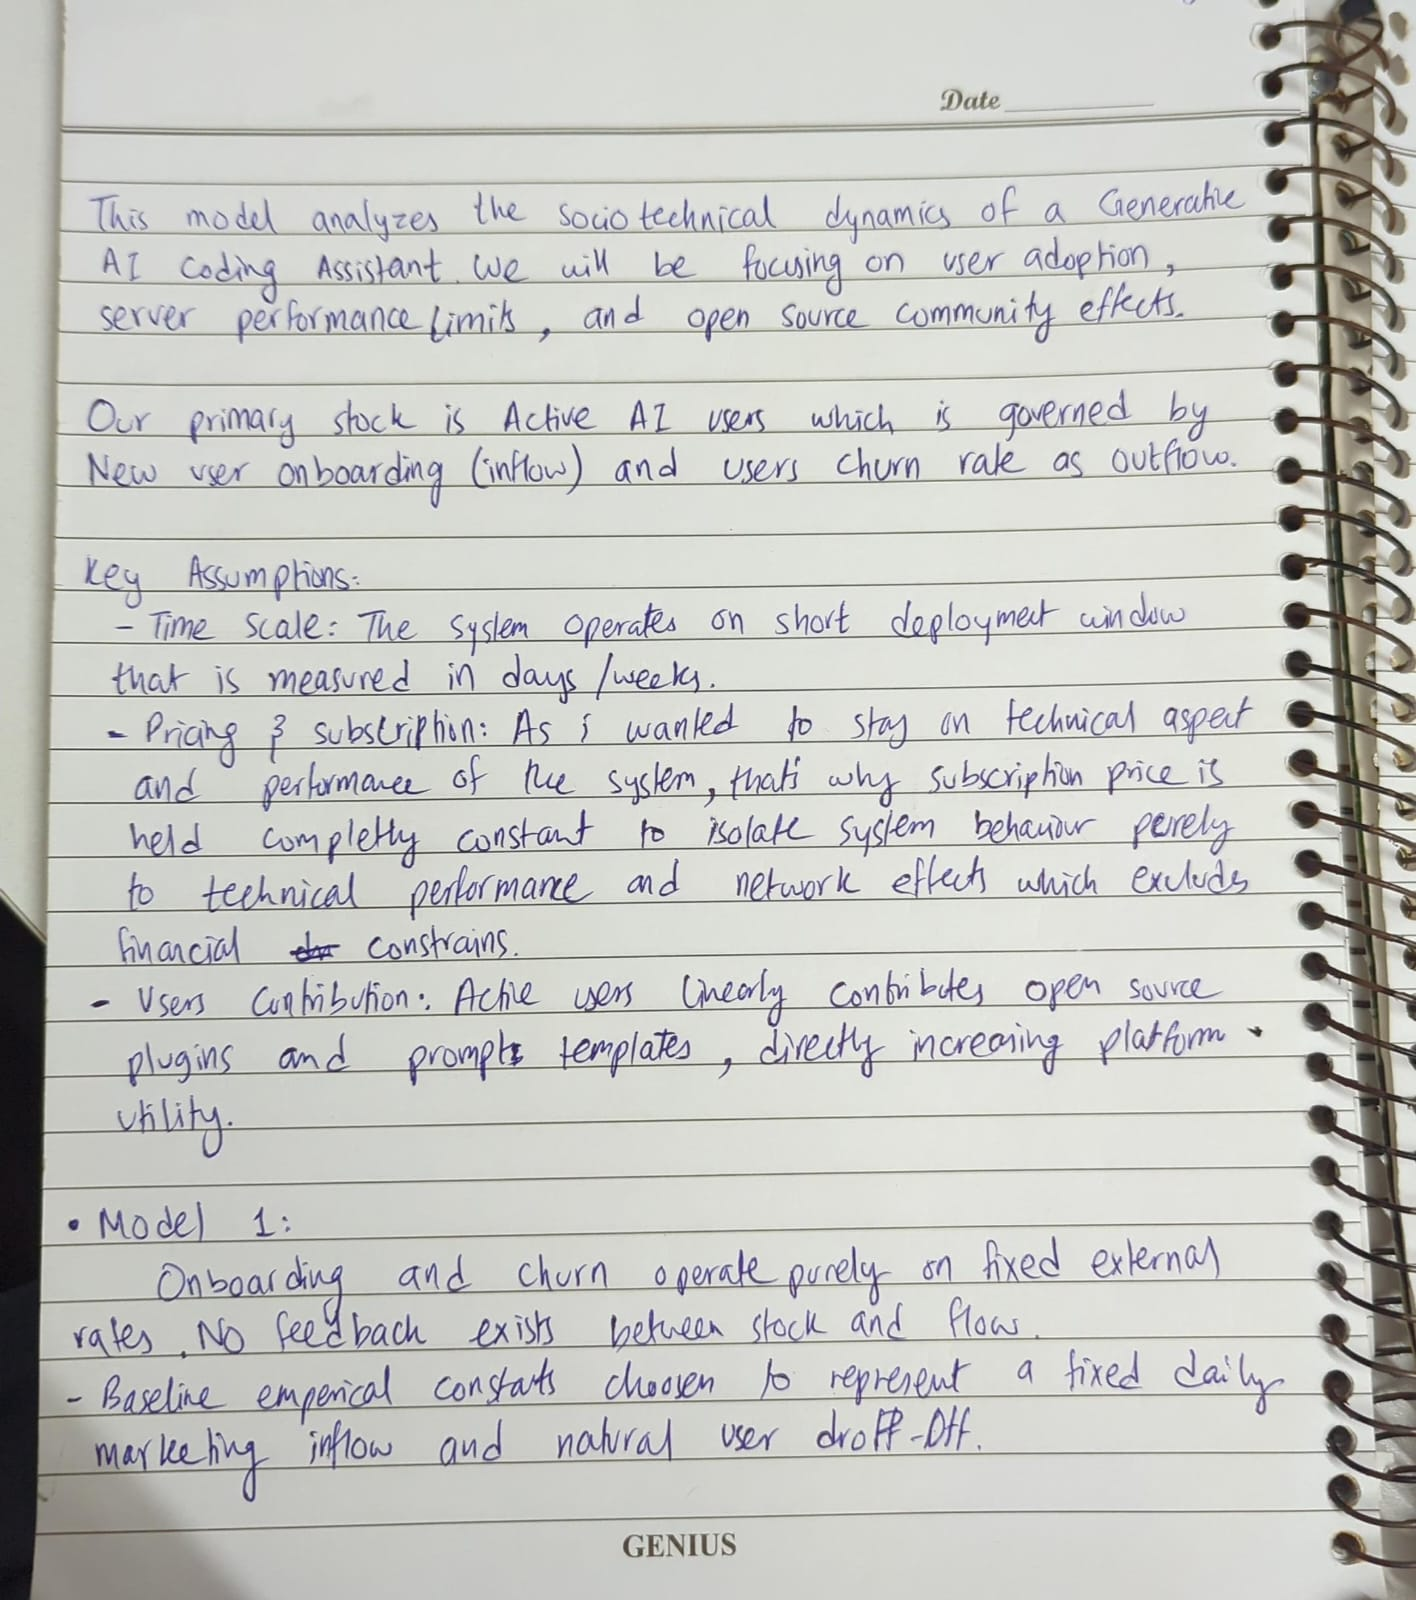 Date
This model analyzes the socio technical dynamics of a Generative
AI Coding Assistant. We will be focusing on user adoption,
server performance limits, and open source community effects.
Our primary stock is Active AI users which is governed by
New user onboarding (inflow) and users churn rate as outflow.
Key Assumptions:
- Time Scale: The system operates on short deployment window
that is measured in days/weeks.
- Pricing & subscription: As i wanted to stay on technical aspect
and performance of the system, that's why subscription price is
held completly constant to isolate system behaviour purely
to technical performance and network effects which excluds
financial constrains.
- Users Contribution: Active users linearly contributes open source
plugins and prompts templates, directly increasing platform
utility.
• Model 1:
Onboarding and churn operate purely on fixed external
rates. No feedback exists between stock and flow.
- Baseline emperical constants choosen to represent a fixed daily
marketing inflow and natural user droff-off.
GENIUS